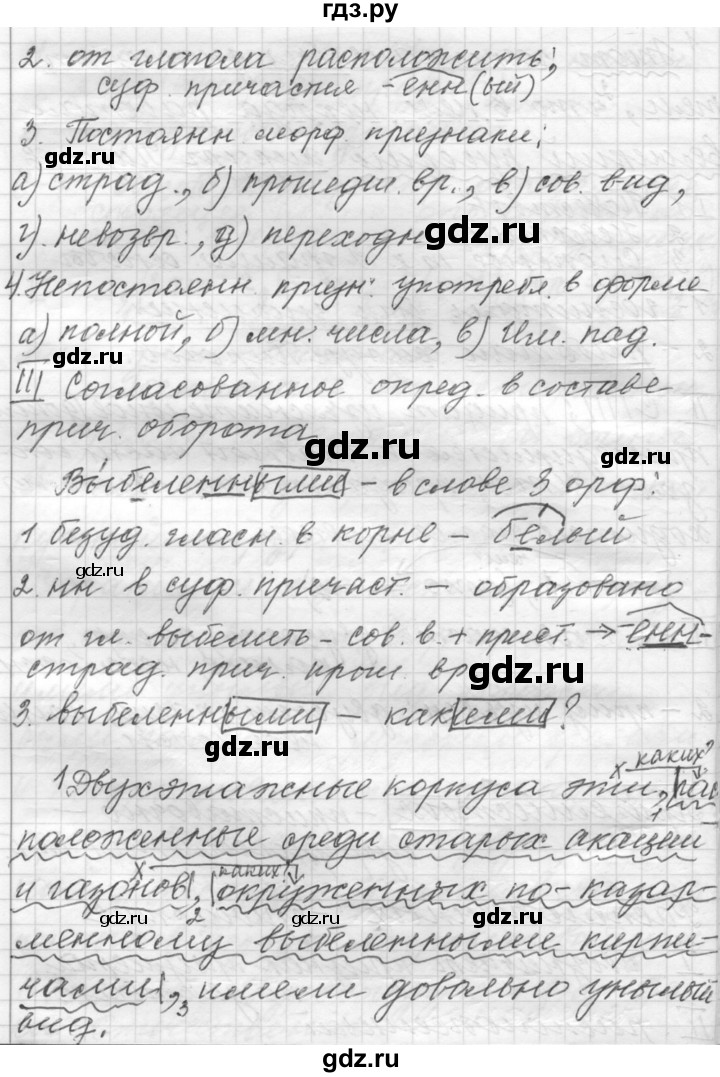 гдз.ру
2. от глагола расположить;
суф. причастия -енн(ый)
3. Постоянн морф. признаки:
gdz.ru
а) страд., б) прошедш. вр., в) сов. вид,
г). невозвр., д) переходн
gdz.ru
4. Непостоянн. призн: употребл. в форме
а) полной, б) мн. числа, в) Им. пад.
gdz.ru
III Согласованное опред. в составе
прич. оборота
gdz.ru
Выбеленными - в слове 3 орф:
1 безуд. гласн. в корне - белый
gdz.ru
2. нн в суф. причаст. - образовано
от гл. выбелить - сов. в. + прист. → -енн-
страд. прич. прош. вр
gdz.ru
3. выбеленными - какими?
gdz.ru
х каких?
1 Двухэтажные корпуса эти, рас
1
положенные среди старых акаций
х каких?
и газонов, окруженных по-казар-
gdz.ru 2 gdz.ru
менному выбеленными кирпи-
чами, 3 имели довольно унылый
вид.
gdz.ru
gdz.ru